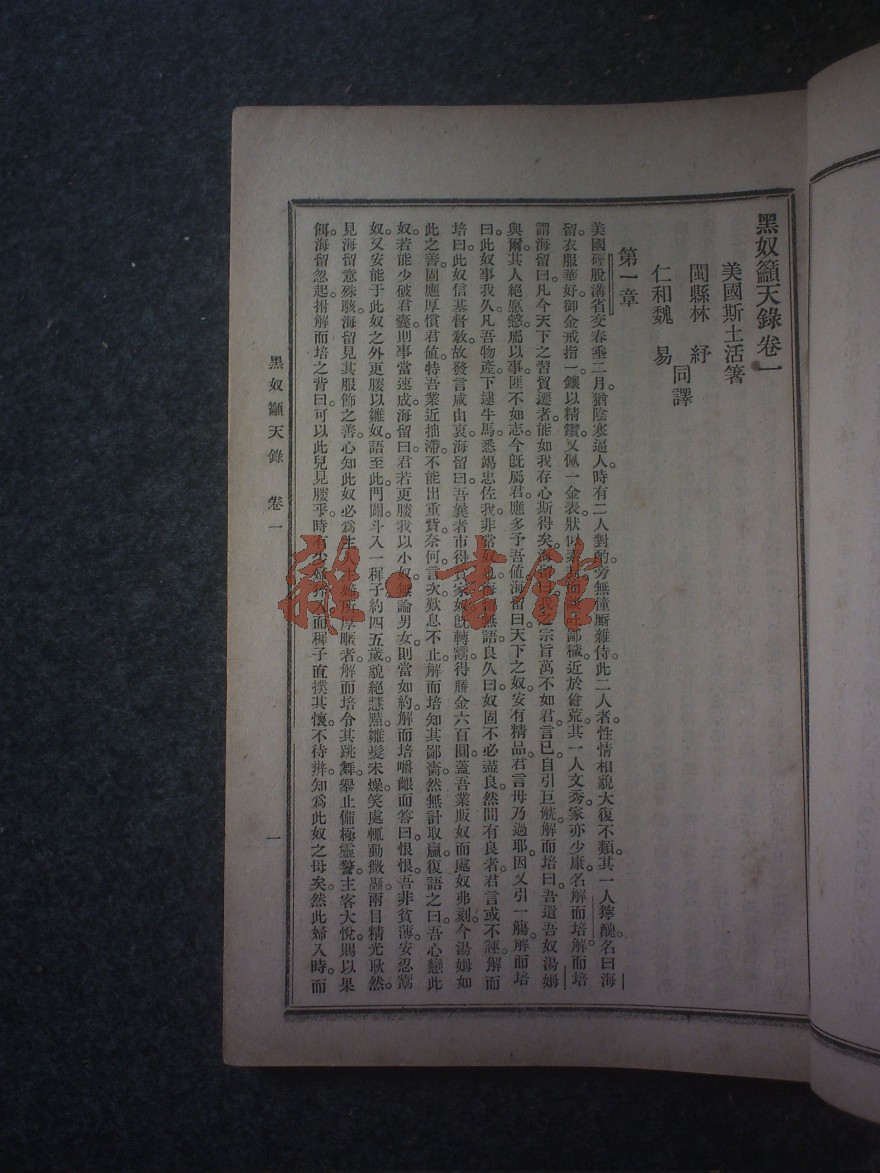 黑奴籲天錄卷一
美國斯土活著
閩縣林 紓
仁和魏 易
同譯
第一章
美國硜股溝省交春垂二月猶陰寒逼人時有二人對酌旁無僮廝雜侍此二人者性情相貌大復不類其一人獰醜名曰海
留衣服華好御金戒指一鑲以精鑽又佩一金表狀鄙穢近於傖荒其一人文秀家亦少康名解而培解而培
謂海留曰凡今天下之習貿遷者能如我存心斯得矣宗旨萬不如君言已自引巨觥解而培曰吾遣吾奴湯姆
與爾其人絕愿慤屬以事匪不如志今既屬君應多予吾值海留曰天下之奴安有精品君言毋乃過耶因又引一觴解而培
曰此奴事我久凡吾物產下逮牛馬悉竭忠佐我非常奴也海留無語良久曰奴固不必盡良然間有良者君言或不誣解而
培曰此奴信基督敎故發言咸由衷海留曰吾曩者市得貧家奴既轉鬻得勝金六百圓蓋吾業販奴而處奴弗刻今湯姆如
此之善固應厚償君值特吾業近拙滯不能出重貲奈何言次歎息不止解而培知其鄙嗇然無計取贏復語之曰吾心戀此
奴若能少破君囊則事當速成海留曰君若更媵我以小奴無論男女則當如約解而培嚼齦而答曰恨恨吾非貧薄安忍鬻
奴又安能于此奴之外更媵以雛奴語至此門闢斗入一穉子約四五歲貌絕慧黠雛髮未燥笑處輒動微渦兩目精光耿然
見海留意殊駭海留見其服飾之善心知此奴必爲主厚暱者解而培令其跳舞舉止備極靈警主客大悅賜以果
餌海留忽起拊解而培之背曰可以此兒見媵乎時而穉子直撲其懷不待辨知爲此奴之母矣然此婦入時而
黑奴籲天錄 卷一
一
雜·書館